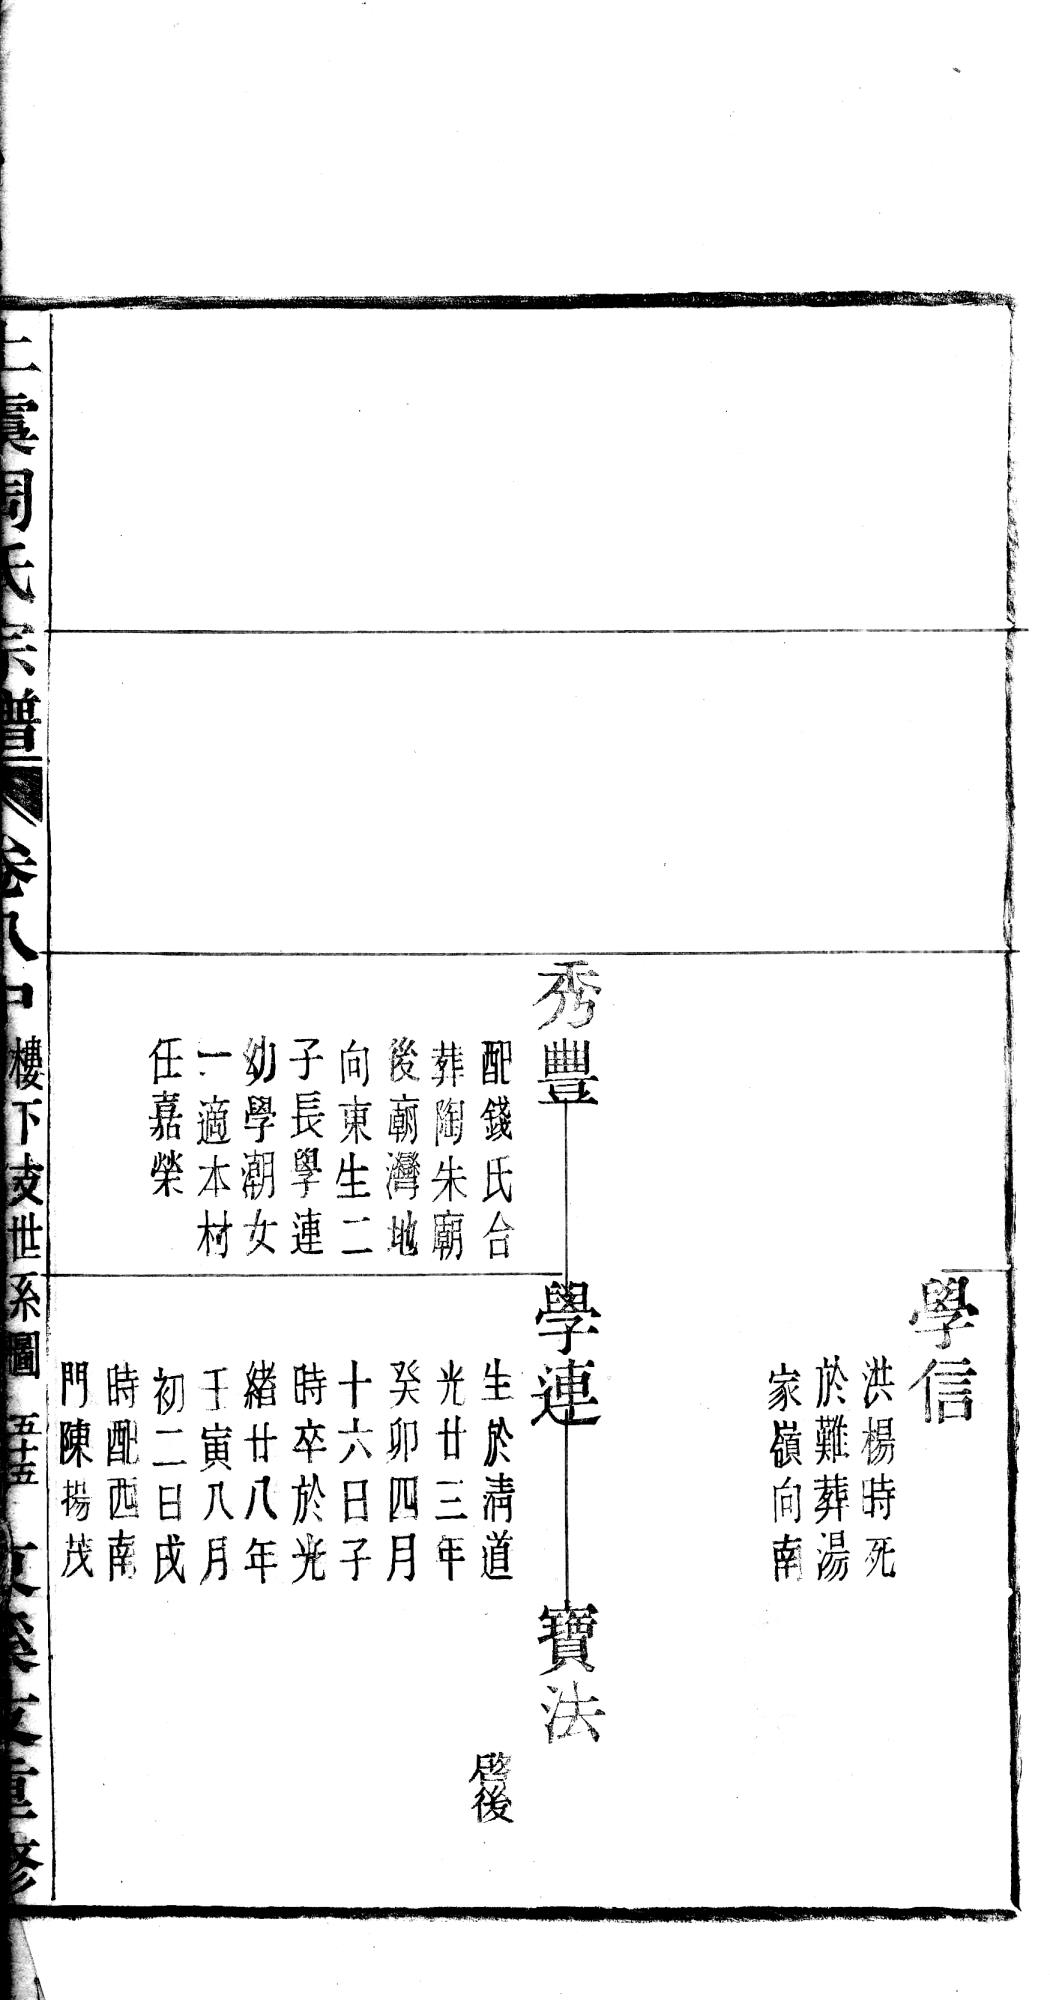 學信
洪楊時死
於難葬湯
家嶺向南
秀豐
配錢氏合
葬陶朱廟
後廟灣地
向東生二
子長學連
幼學潮女
一適本村
任嘉榮
學連
生於清道
光廿三年
癸卯四月
十六日子
時卒於光
緒廿八年
壬寅八月
初二日戌
時配西南
門陳揚茂
寶法
啓後
上虞周氏宗譜
卷八中
樓下支世系圖
五十五
重修